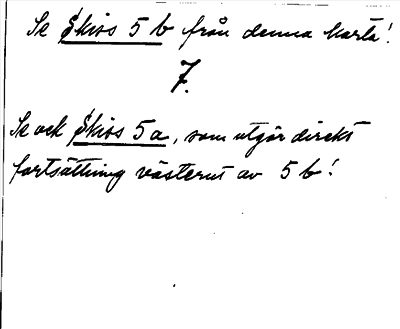 Se Skiss 5 b från denna karta!
7.
Se ock Skiss 5a, som utgör direkt
fortsättning västerut av 5 b!